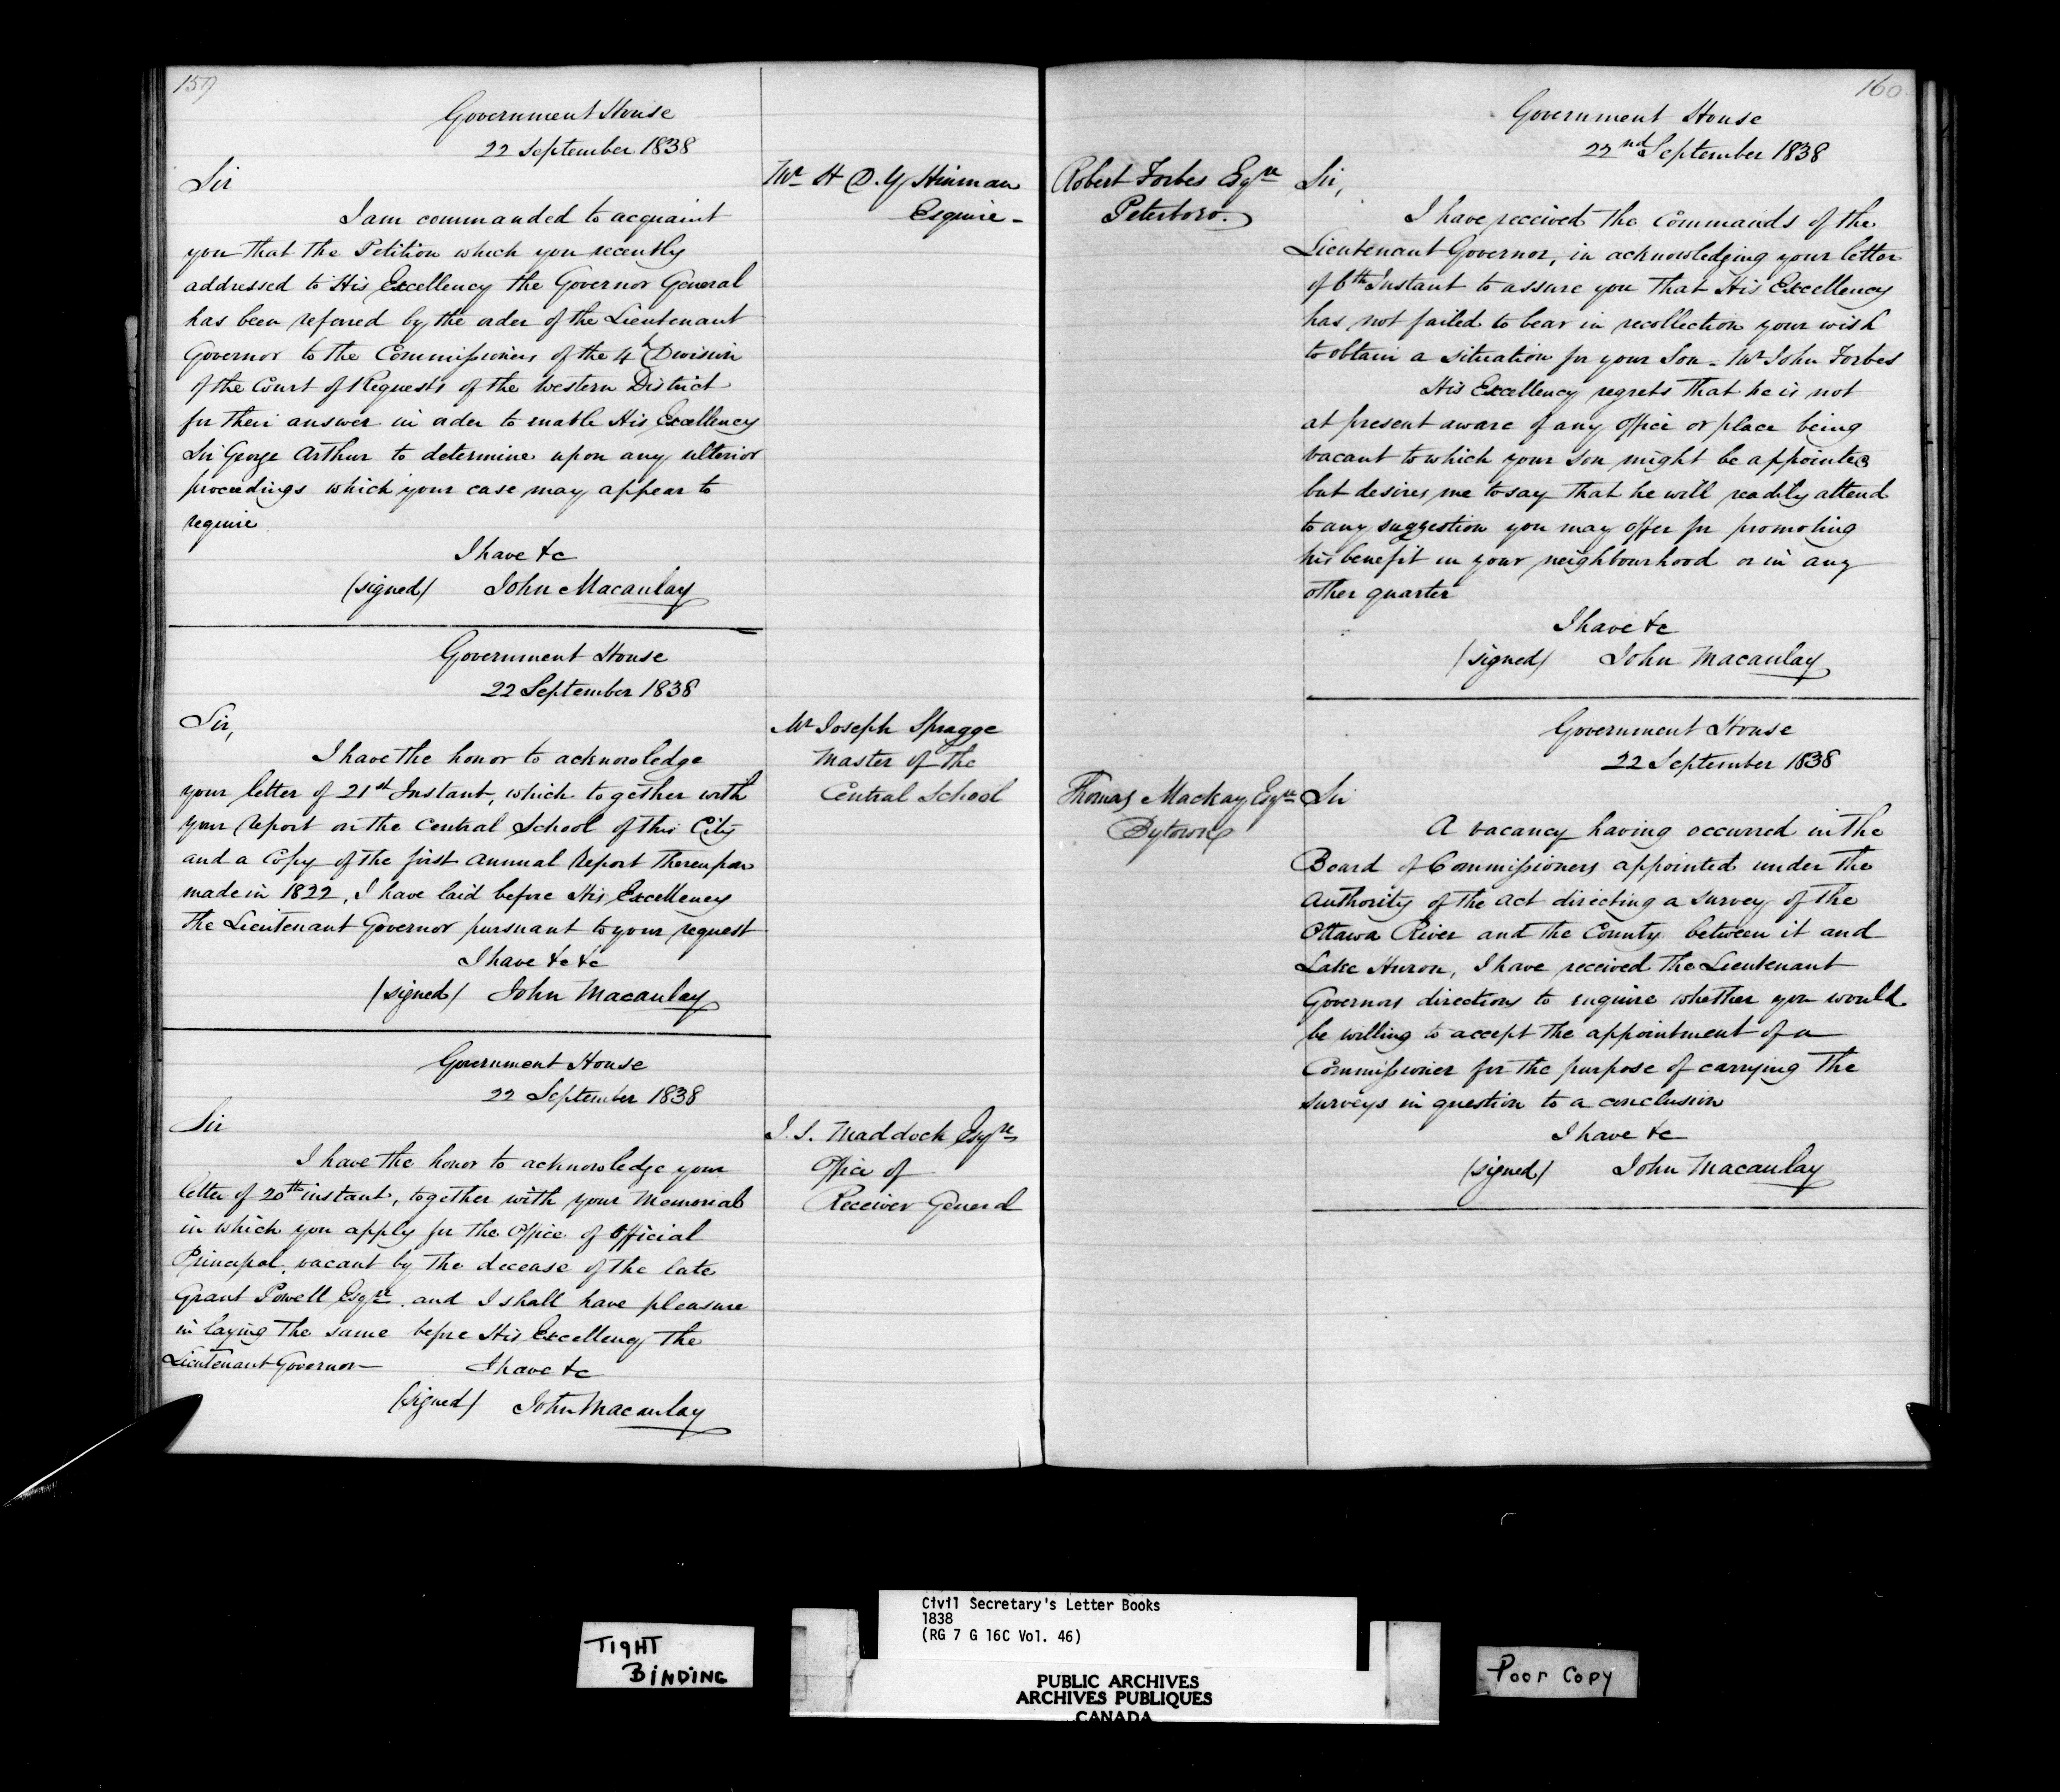 159
Government House
22 September 1838
Mr H D. Y Hinman
Esquire -
Sir
I am commanded to acquaint
you that the Petition which you recently
addressed to His Excellency the Governor General
has been referred by the order of the Lieutenant
Governor to the Commissioners of the 4th Division
of the Court of Requests of the Western District
for their answer in order to enable His Excellency
Sir George Arthur to determine upon any ulterior
proceedings which your case may appear to
require
I have &c
(signed) John Macaulay
Government House
22 September 1838
Mr Joseph Spragge
Master of the
Central School
Sir,
I have the honor to acknowledge
your letter of 21st Instant, which together with
your Report on the Central School of this City
and a Copy of the first Annual Report thereupon
made in 1822, I have laid before His Excellency
the Lieutenant Governor pursuant to your request
I have &c &c
(signed) John Macaulay
Government House
22 September 1838
J. S. Maddock Esqre
Office of
Receiver General
Sir
I have the honor to acknowledge your
letter of 20th instant, together with your Memorial
in which you apply for the Office of Official
Principal, vacant by the decease of the late
Grant Powell Esqre. and I shall have pleasure
in laying the same before His Excellency the
Lieutenant Governor—
I have &c
(signed) John Macaulay
160
Government House
22nd September 1838
Robert Forbes Esqre
Peterboro.
Sir,
I have received the Commands of the
Lieutenant Governor, in acknowledging your letter
of 6th Instant to assure you that His Excellency
has not failed to bear in recollection your wish
to obtain a situation for your Son - Mr John Forbes
His Excellency regrets that he is not
at present aware of any office or place being
vacant to which your son might be appointed
but desires me to say that he will readily attend
to any suggestion you may offer for promoting
his benefit in your neighbourhood or in any
other quarter
I have &c
(signed) John Macaulay
Government House
22 September 1838
Thomas Mackay Esqre
Bytown
Sir
A vacancy having occurred in the
Board of Commissioners appointed under the
Authority of the Act directing a survey of the
Ottawa River and the County between it and
Lake Huron, I have received the Lieutenant
Governors directions to enquire whether you would
be willing to accept the appointment of a
Commissioner for the purpose of carrying the
surveys in question to a conclusion
I have &c
(signed) John Macaulay
TIGHT
BINDING
Civil Secretary's Letter Books
1838
(RG 7 G 16C Vol. 46)
PUBLIC ARCHIVES
ARCHIVES PUBLIQUES
CANADA
Poor Copy